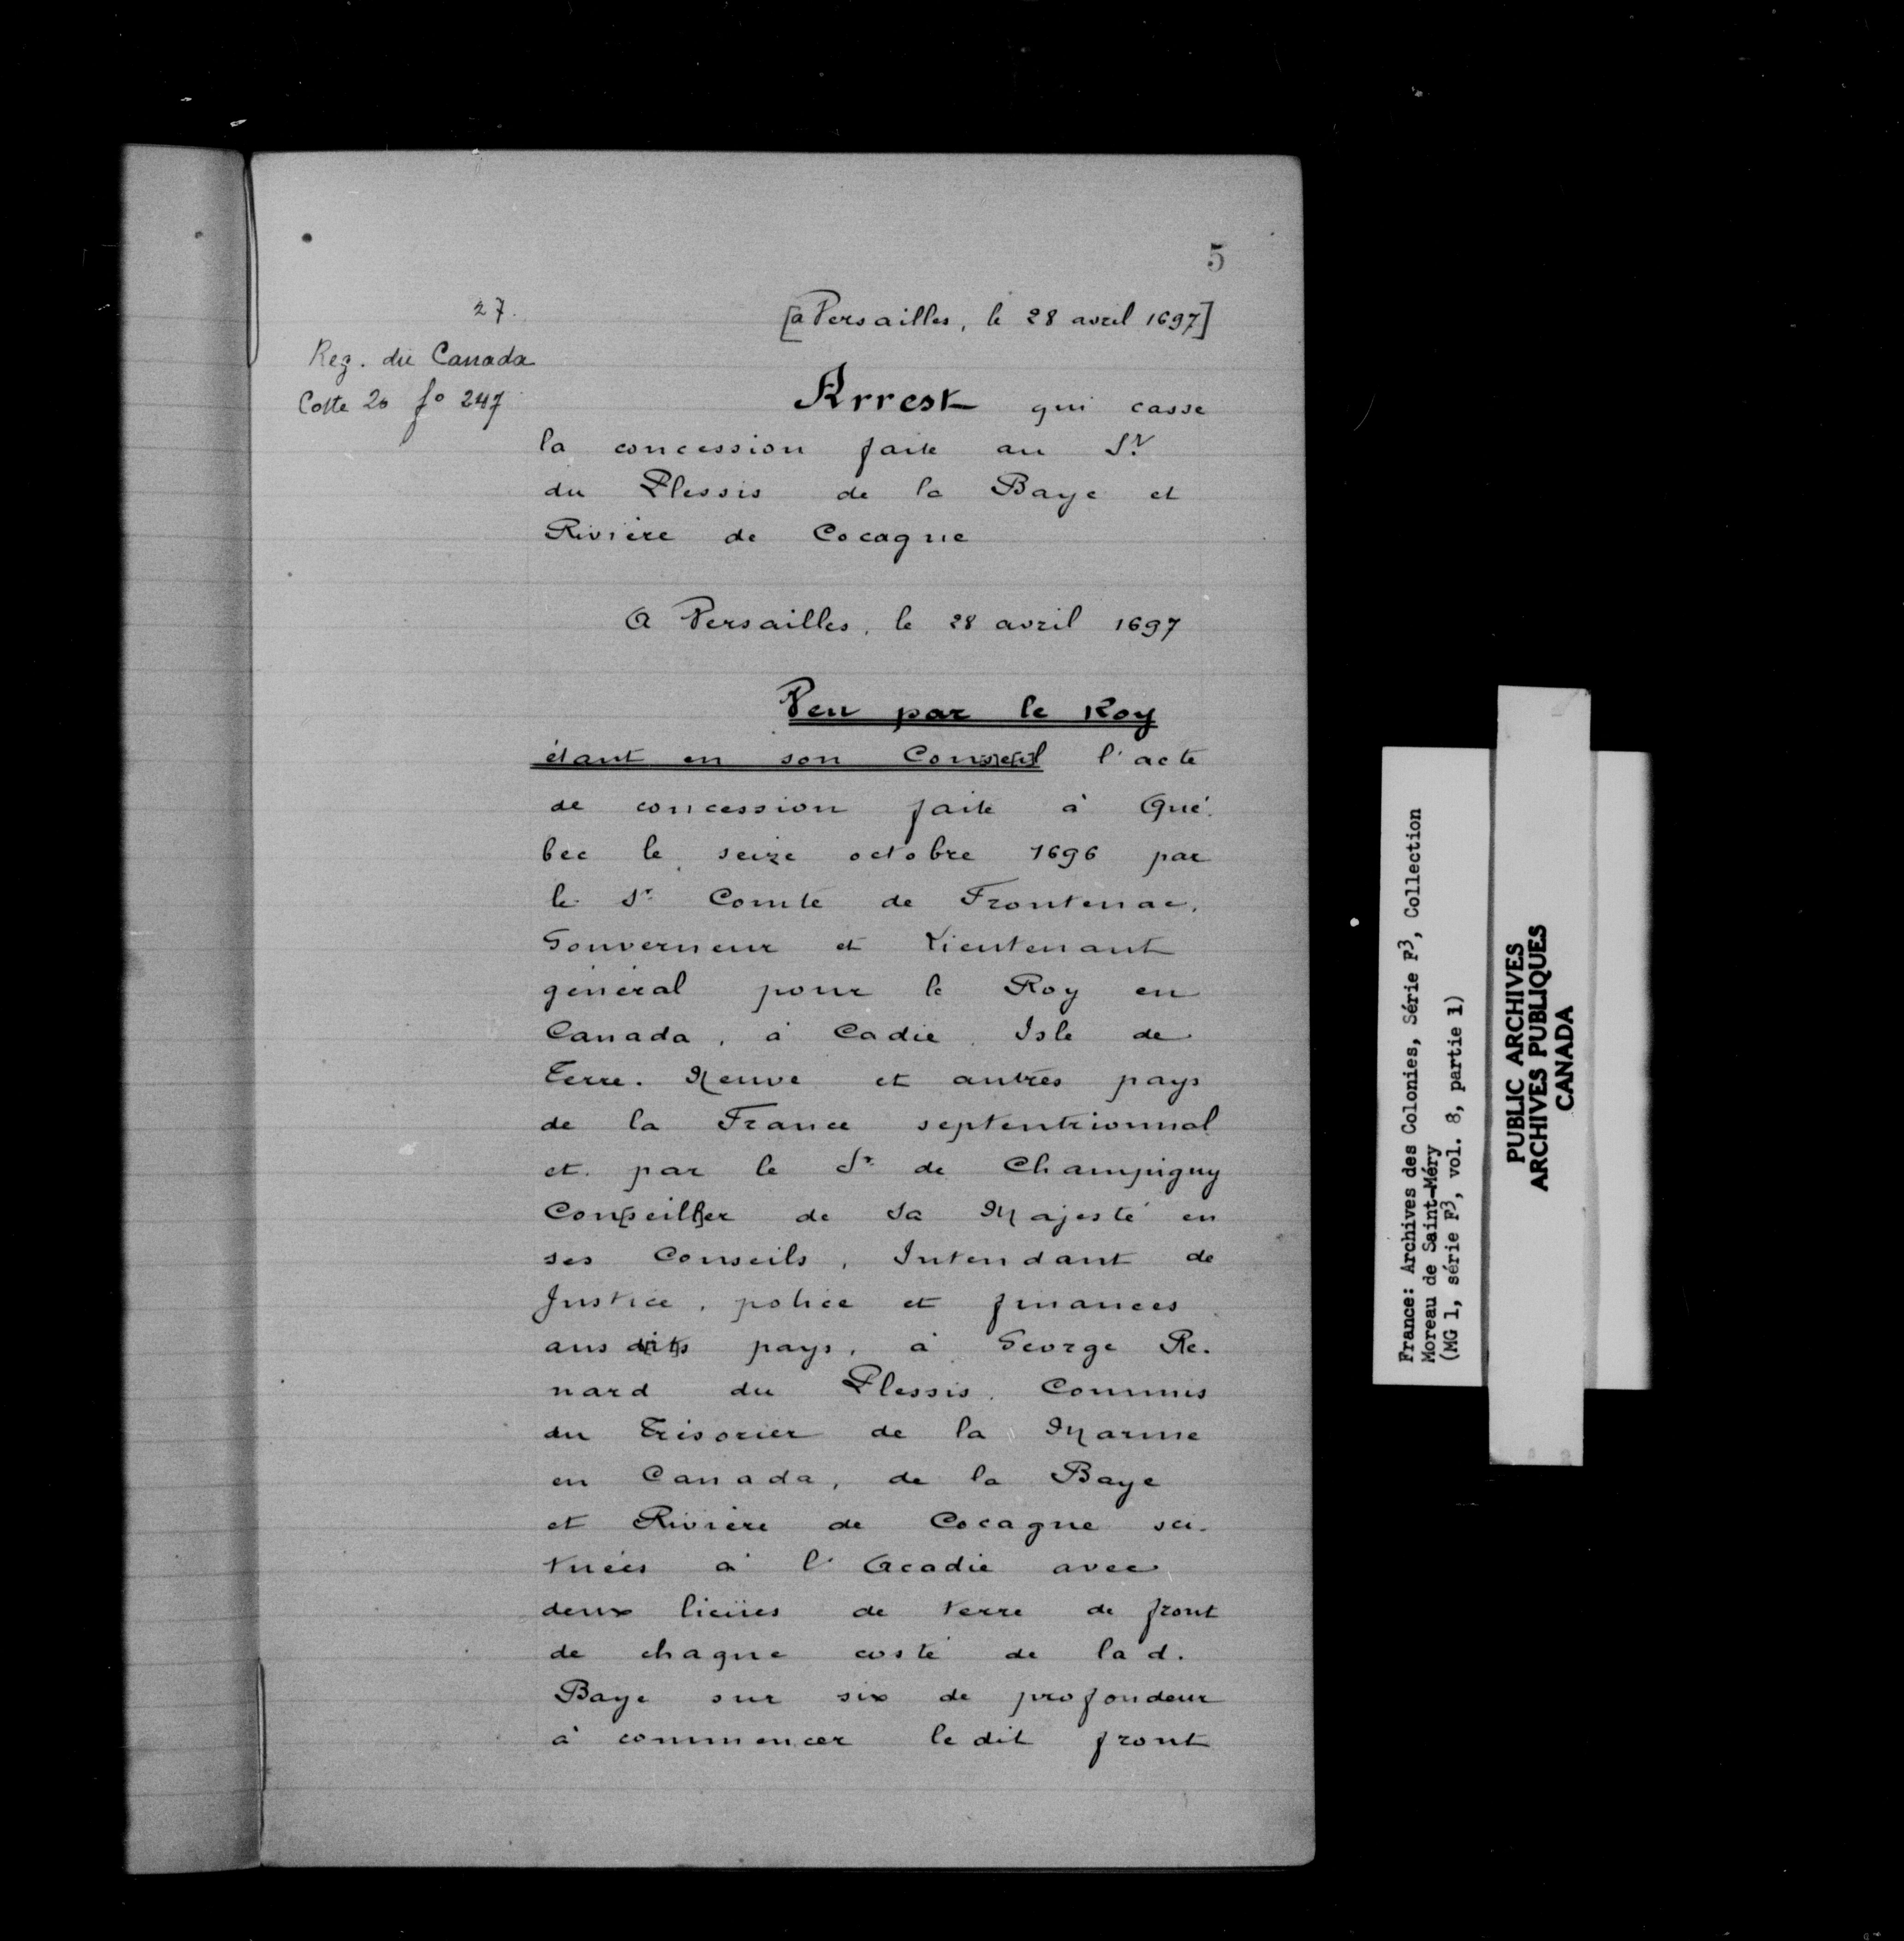 5
27.
[à Versailles, le 28 avril 1697]
Reg. du Canada
Cotte 20 fo 247
Arrest qui casse
la concession faite au Sr
du Plessis de la Baye et
Rivière de Cocagne
A Versailles, le 28 avril 1697
Veu par le Roy
étant en son Conseil l'acte
de concession faite à Qué-
bec le seize octobre 1696 par
le Sr Comte de Frontenac,
Gouverneur et Lieutenant
général pour le Roy en
Canada, à Cadie, Isle de
Terre-Neuve et autres pays
de la France septentrionnal
et par le Sr de Champigny
Conseiller de Sa Majesté en
ses Conseils, Intendant de
Justice, police et finances
aus dits pays, à George Re-
nard du Plessis, Commis
du Trésorier de la Marine
en Canada, de la Baye
et Rivière de Cocagne sci-
tuées à l'Acadie avec
deux lieües de terre de front
de chaque costé de lad.
Baye sur six de profondeur
à commencer le dit front
France: Archives des Colonies, Série F3, Collection
Moreau de Saint-Méry
(MG 1, série F3, vol. 8, partie 1)
PUBLIC ARCHIVES
ARCHIVES PUBLIQUES
CANADA